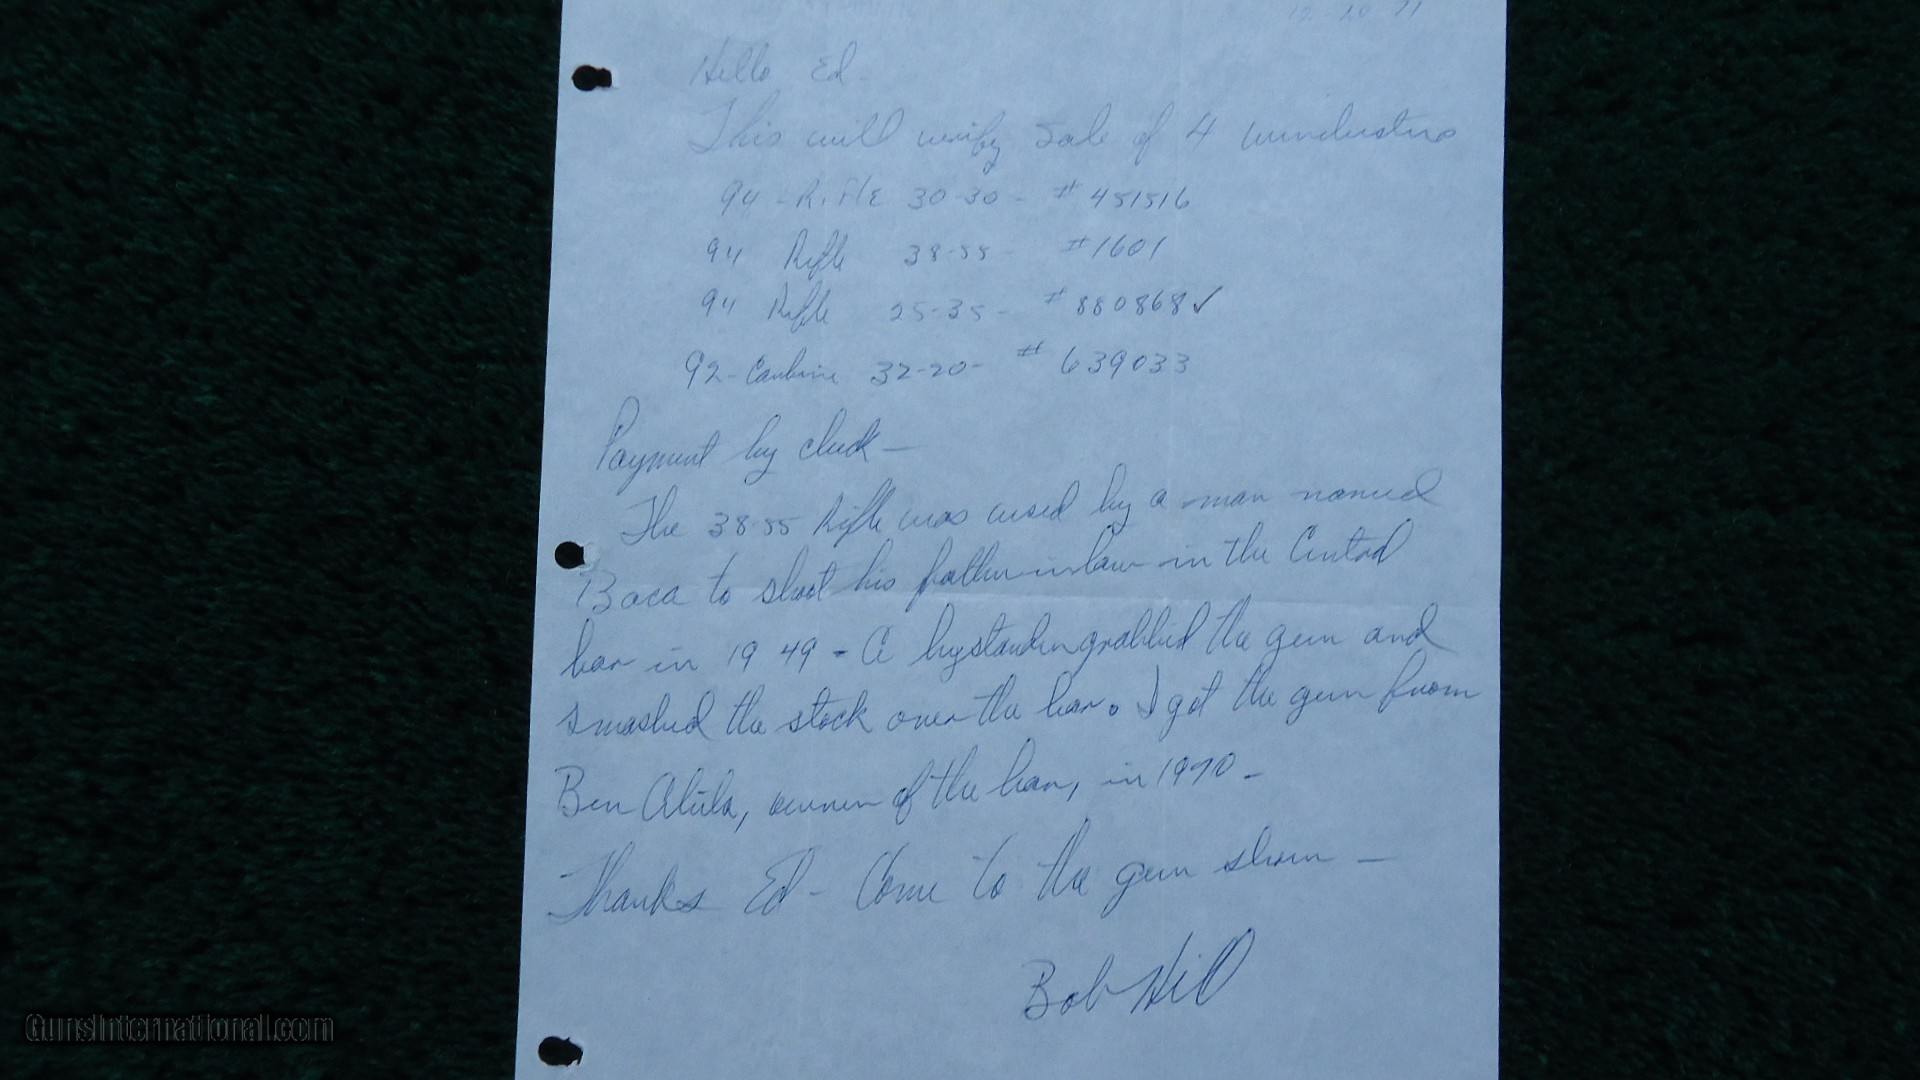 12-20-71
Hello Ed-
This will verify sale of 4 winchesters
94 - Rifle 30-30 - # 451516
94 Rifle 38-55 - #1601
94 Rifle 25-35 - #880868✓
92-Carbine 32-20- # 639033
Payment by check-
The 38-55 Rifle was used by a man named
Baca to shoot his father-in-law in the Central
bar in 1949 - A bystander grabbed the gun and
smashed the stock over the bar. I got the gun from
Ben, owner of the bar, in 1970-
Thanks Ed - Come to the gun show -
Bob Hill
GunsInternational.com